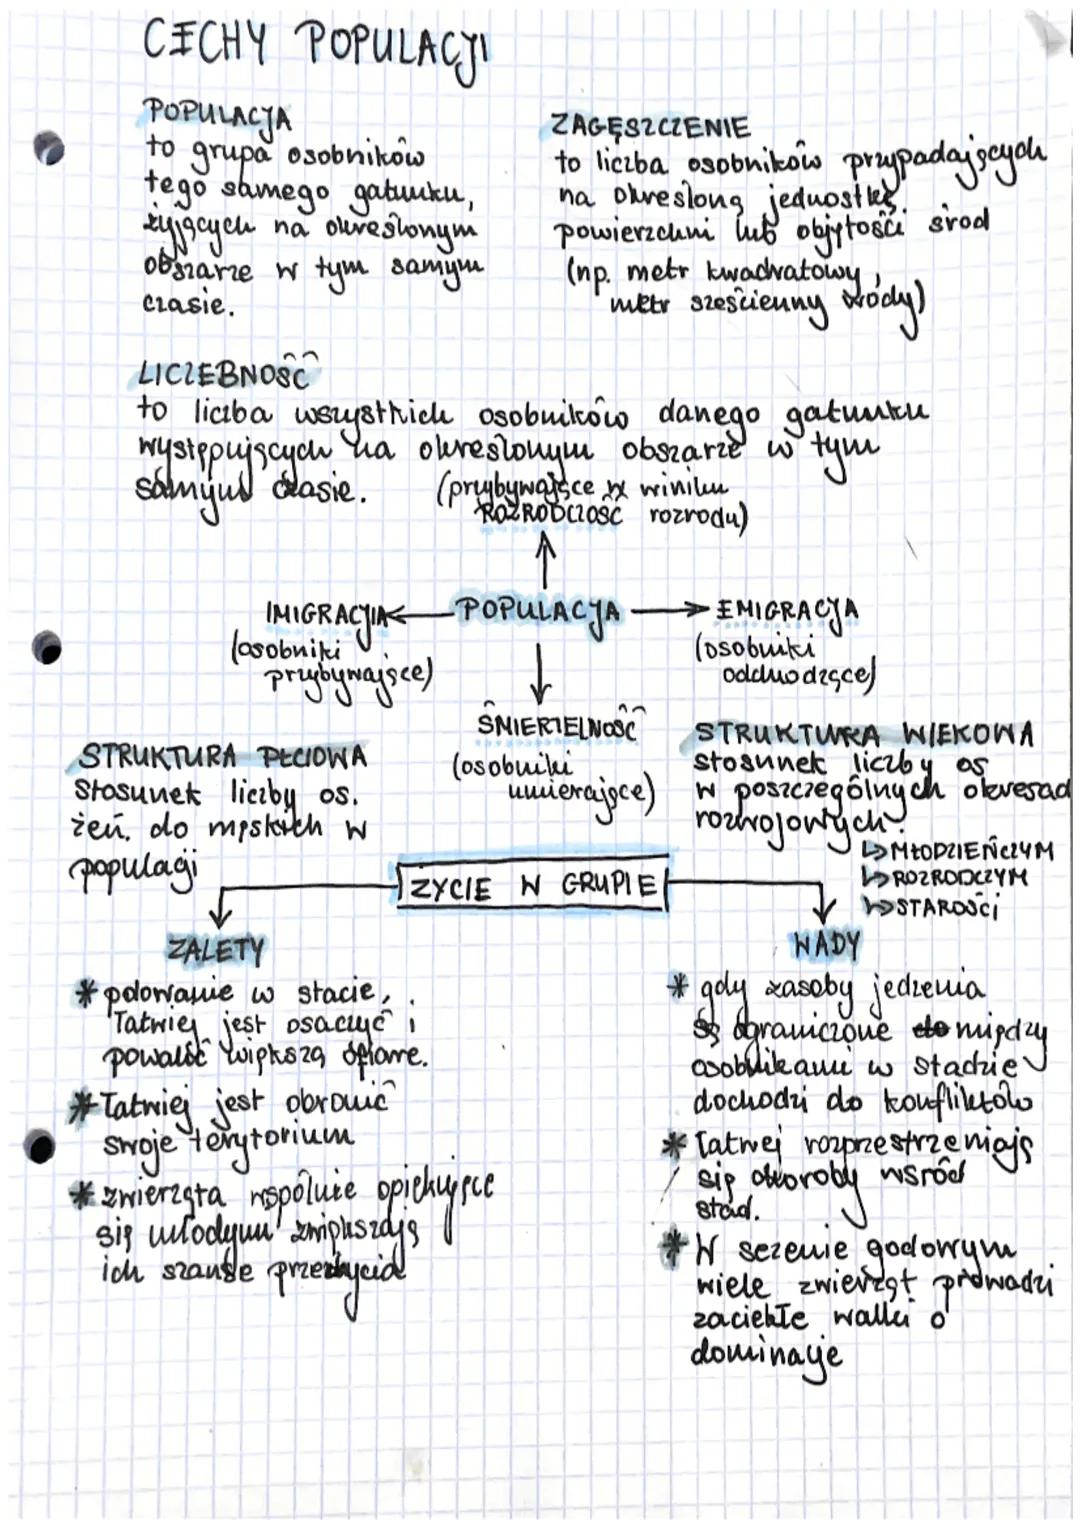 CECHY POPULACJI
POPULACJA
to grupa osobników
tego samego gatunku,
żyjących na określonym
obszarze w tym samym
czasie.
ZAGĘSZCZENIE
to liczba osobników przypadających
na określoną jednostkę
powierzchni lub objętości środ
(np. metr kwadratowy,
metr sześcienny wody)
LICZEBNOŚĆ
to liczba wszystkich osobników danego gatunku
występujących na określonym obszarze w tym
samym czasie.
(przybywające w winiku
ROZRODCZOŚĆ rozrodu)
IMIGRACJIA
POPULACJA
EMIGRACJA
(osobniki
przybywające)
(osobniki
odchodzące)
ŚMIERTELNOŚĆ
(osobniki
umierające)
STRUKTURA PŁCIOWA
Stosunek liczby os.
żeń. do męskich w
populacji
STRUKTURA WIEKOWA
stosunek liczby os
w poszczególnych okresad
rozwojowych:
↳MŁODZIEŃCZYM
↳ROZRODCZYM
↳STAROŚCI
ŻYCIE W GRUPIE
ZALETY
* polowanie w stacie,
łatwiej jest osaczyć i
powalić większą ofiarę.
* łatwiej jest obronić
swoje terytorium
* zwierzęta wspólnie opiekujące
się młodymi zwiększają
ich szanse przeżycia
WADY
* gdy zasoby jedzenia
są ograniczone do między
osobnikami w stadzie
dochodzi do konfliktów
* łatwej rozprzestrzeniają
się choroby wśród
stad.
* W sezenie godowym
wiele zwierząt prowadzi
zaciekłe walki o
dominacje